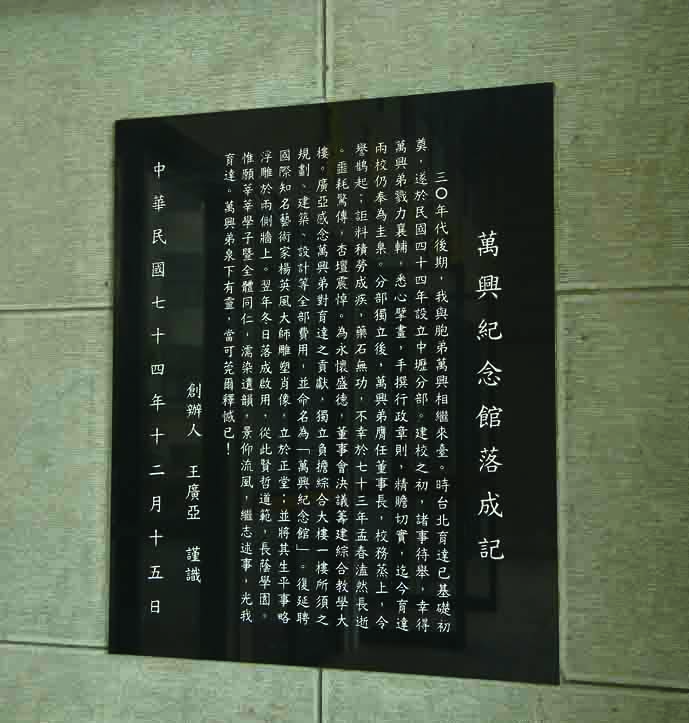 萬興紀念館落成記
三〇年代後期，我與胞弟萬興相繼來臺。時台北育達已基礎初
奠，遂於民國四十四年設立中壢分部。建校之初，諸事待舉，幸得
萬興弟戮力襄輔，悉心擘畫，手撰行政章則，精贍切實，迄今育達
兩校仍奉為圭臬。分部獨立後，萬興弟膺任董事長，校務蒸上，令
譽鵲起；詎料積勞成疾，藥石無功，不幸於七十三年孟春溘然長逝
。噩耗驚傳，杏壇震悼。為永懷盛德，董事會決議籌建綜合教學大
樓。廣亞感念萬興弟對育達之貢獻，獨立負擔綜合大樓一樓所須之
規劃、建築、設計等全部費用，並命名為「萬興紀念館」。復延聘
國際知名藝術家楊英風大師雕塑肖像，立於正堂；並將其生平事略
浮雕於兩側牆上。翌年冬日落成啟用，從此賢哲道範，長蔭學園。
惟願莘莘學子暨全體同仁，濡染遺韻，景仰流風，繼志述事，光我
育達。萬興弟泉下有靈，當可莞爾釋憾已！
創辦人 王廣亞 謹識
中華民國七十四年十二月十五日